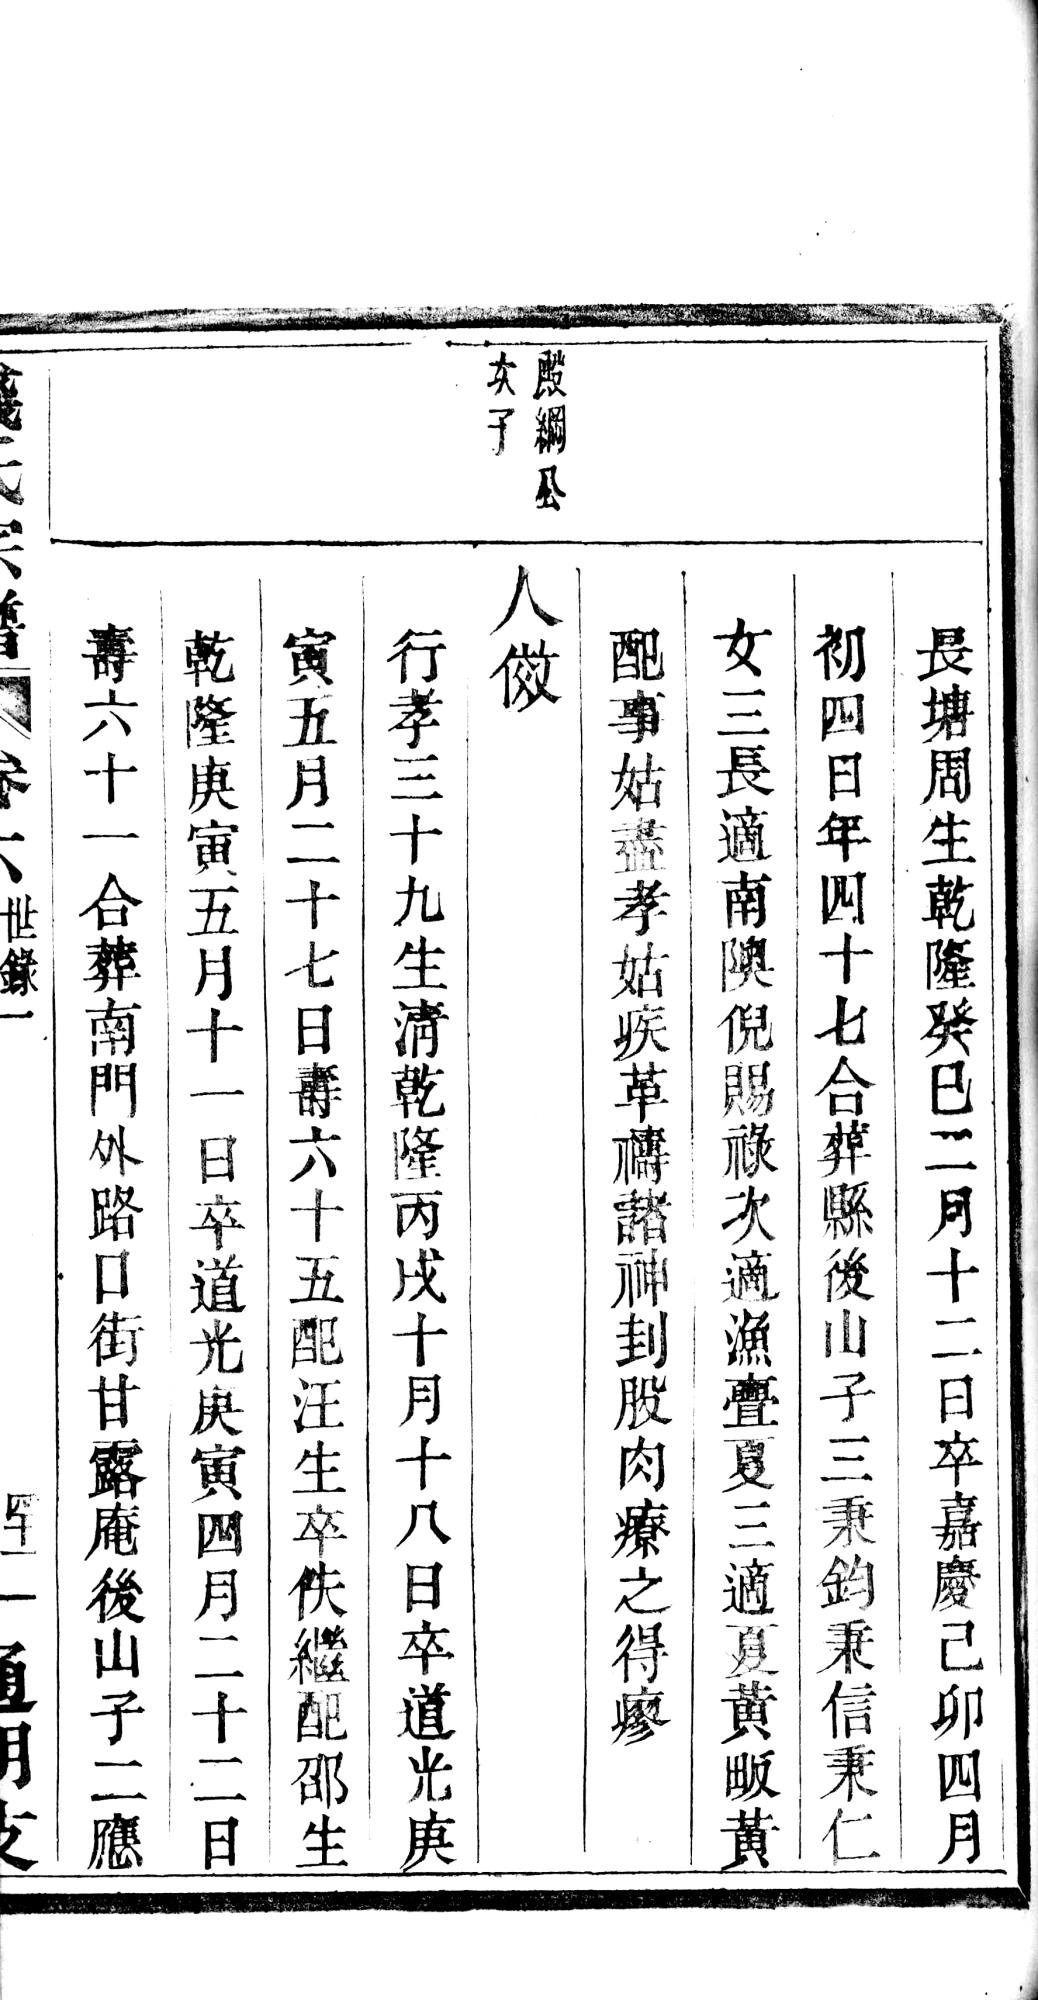 長塘周生乾隆癸巳二月十二日卒嘉慶己卯四月
初四日年四十七合葬縣後山子三秉鈞秉信秉仁
女三長適南隩倪賜祿次適漁亹夏三適夏黃畈黃
配事姑盡孝姑疾革禱諸神刲股肉療之得瘳
殿綱公
次子
人儆
行孝三十九生清乾隆丙戌十月十八日卒道光庚
寅五月二十七日壽六十五配汪生卒佚繼配邵生
乾隆庚寅五月十一日卒道光庚寅四月二十二日
壽六十一合葬南門外路口街甘露庵後山子二應
氏宗譜
卷六
世錄一
通明支